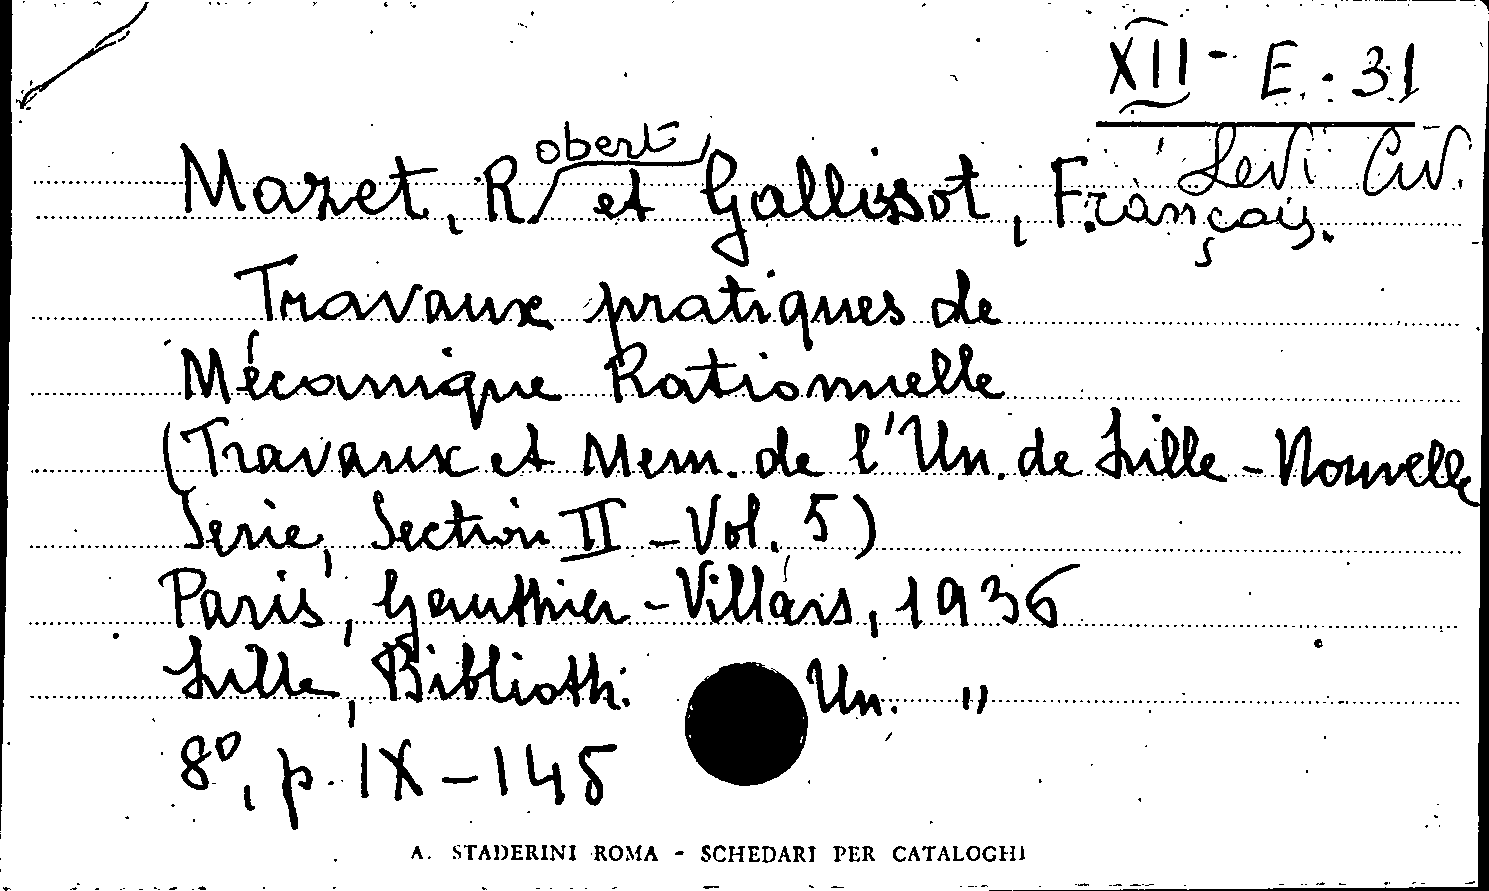 XII - E. - 31
Levi Civ.
Mazet, Robert et Gallissot, François.
Travaux pratiques de
Mécanique Rationnelle
(Travaux et Mem. de l'Un. de Lille - Nouvelle
Serie, Section II - Vol. 5)
Paris, Gauthier - Villars, 1936
Lille, Biblioth. Un. "
8º, p. IX - 145
A. STADERINI ROMA - SCHEDARI PER CATALOGHI